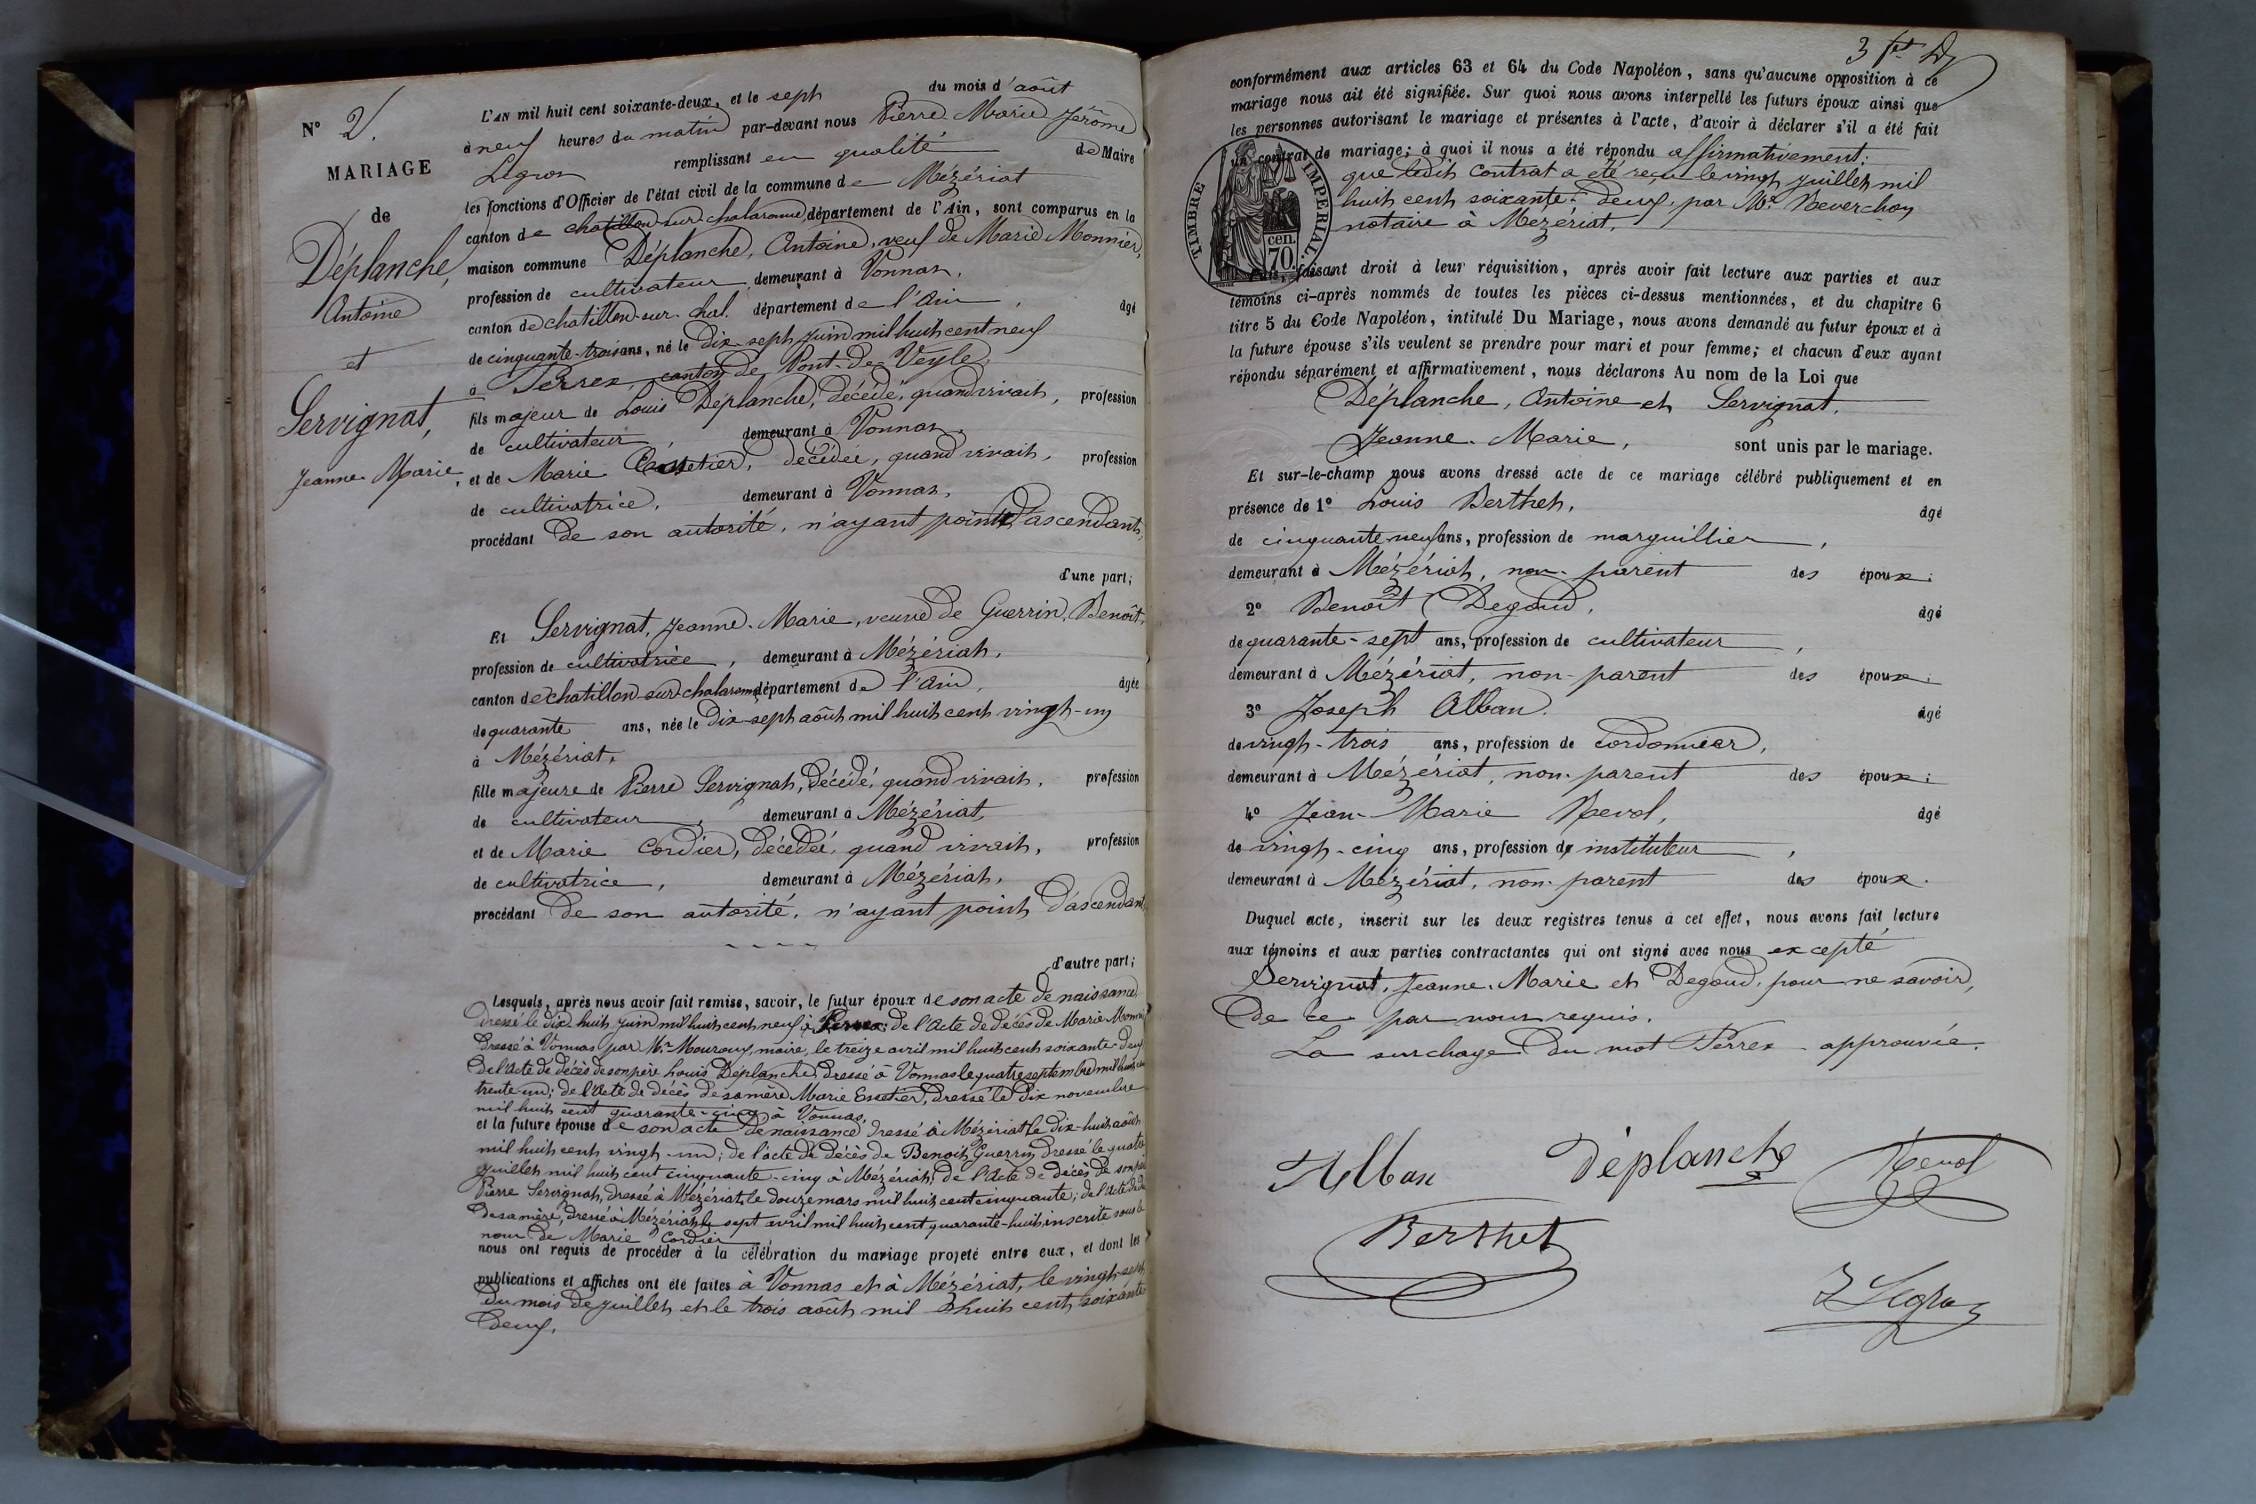 N° 2.
MARIAGE
de
Déplanche,
Antoine
et
Servignat,
Jeanne-Marie,
L'AN mil huit cent soixante-deux, et le sept du mois d'août
à neuf heures du matin par-devant nous Pierre Marie Jérôme
Legros remplissant en qualité de Maire
les fonctions d'Officier de l'état civil de la commune de Mézériat
canton de chatillon sur chalaronne département de l'Ain, sont comparus en la
maison commune Déplanche, Antoine, veuf de Marie Monnier,
profession de cultivateur demeurant à Vonnas,
canton de chatillon-sur-chal. département de l'Ain, âgé
de cinquante-trois ans, né le Dix-sept juin mil huit cent neuf
à Perrex, canton de Pont-de-Veyle,
fils majeur de Louis Déplanche, décédé, quand vivait, profession
de cultivateur, demeurant à Vonnas,
et de Marie Essetier, décédée, quand vivait, profession
de cultivatrice, demeurant à Vonnas,
procédant de son autorité, n'ayant point d'ascendants,
d'une part;
Et Servignat, Jeanne-Marie, veuve de Guerrin, Benoît,
profession de cultivatrice, demeurant à Mézériat,
canton de chatillon-sur-chalaronne département de l'Ain, âgée
de quarante ans, née le Dix-sept août mil huit cent vingt-un
à Mézériat,
fille majeure de Pierre Servignat, Décédé, quand vivait, profession
de cultivateur, demeurant à Mézériat,
et de Marie Cordier, décédée, quand vivait, profession
de cultivatrice, demeurant à Mézériat,
procédant de son autorité, n'ayant point d'ascendant,
d'autre part;
Lesquels, après nous avoir fait remise, savoir, le futur époux de son acte de naissance,
dressé le dix-huit juin mil huit cent neuf à Perrex; de l'Acte de décès de Marie Monnier
dressé à Vonnas par Mr Mouroux, maire, le treize avril mil huit cent soixante-deux
de l'Acte de décès de son père Louis Déplanche, dressé à Vonnas le quatre septembre mil huit cent
trente-un; de l'Acte de décès de sa mère Marie Essetier, dressé le dix novembre
mil huit cent quarante-cinq à Vonnas,
et la future épouse de son acte de naissance dressé à Mézériat le dix-huit août
mil huit cent vingt-un; de l'acte de décès de Benoît Guerrin dressé le quatre
juillet mil huit cent cinquante-cinq à Mézériat; de l'Acte de décès de son père
Pierre Servignat, dressé à Mézériat le douze mars mil huit cent cinquante; de l'Acte de
de sa mère, dressé à Mézériat le sept avril mil huit cent quarante-huit inscrite sous le
nom de Marie Cordier
nous ont requis de procéder à la célébration du mariage projeté entre eux, et dont les
publications et affiches ont été faites à Vonnas et à Mézériat, le vingt-sept
du mois de juillet et le trois août mil huit cent soixante
deux.
3 ft D
conformément aux articles 63 et 64 du Code Napoléon, sans qu'aucune opposition à ce
mariage nous ait été signifiée. Sur quoi nous avons interpellé les futurs époux ainsi que
les personnes autorisant le mariage et présentes à l'acte, d'avoir à déclarer s'il a été fait
un contrat de mariage; à quoi il nous a été répondu affirmativement;
que ledit contrat a été reçu le vingt juillet mil
huit cent soixante-deux, par Me Reverchon
notaire à Mézériat,
TIMBRE IMPERIAL
cen. 70
Puis, faisant droit à leur réquisition, après avoir fait lecture aux parties et aux
témoins ci-après nommés de toutes les pièces ci-dessus mentionnées, et du chapitre 6
titre 5 du Code Napoléon, intitulé Du Mariage, nous avons demandé au futur époux et à
la future épouse s'ils veulent se prendre pour mari et pour femme; et chacun d'eux ayant
répondu séparément et affirmativement, nous déclarons Au nom de la Loi que
Déplanche, Antoine et Servignat,
Jeanne-Marie, sont unis par le mariage.
Et sur-le-champ nous avons dressé acte de ce mariage célébré publiquement et en
présence de 1° Louis Berthet, âgé
de cinquante-neuf ans, profession de marguillier,
demeurant à Mézériat, non-parent des époux;
2° Benoît Degoud, âgé
de quarante-sept ans, profession de cultivateur,
demeurant à Mézériat, non-parent des époux;
3° Joseph Alban, âgé
de vingt-trois ans, profession de cordonnier,
demeurant à Mézériat, non-parent des époux;
4° Jean-Marie Revol, âgé
de vingt-cinq ans, profession de instituteur,
demeurant à Mézériat, non-parent des époux.
Duquel acte, inscrit sur les deux registres tenus à cet effet, nous avons fait lecture
aux témoins et aux parties contractantes qui ont signé avec nous excepté
Servignat, Jeanne-Marie et Degoud, pour ne savoir,
de ce par nous requis.
La surchage du mot Perrex approuvée.
Alban Déplanche Revol
Berthet
J Legros